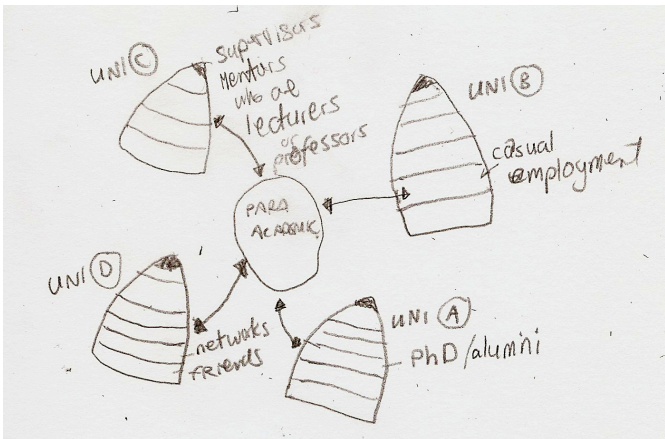 UNI C
supervisors
mentors
who are
lecturers
or
professors
UNI B
casual
employment
PARA
ACADEMIC
UNI D
networks
friends
UNI A
PhD/alumini